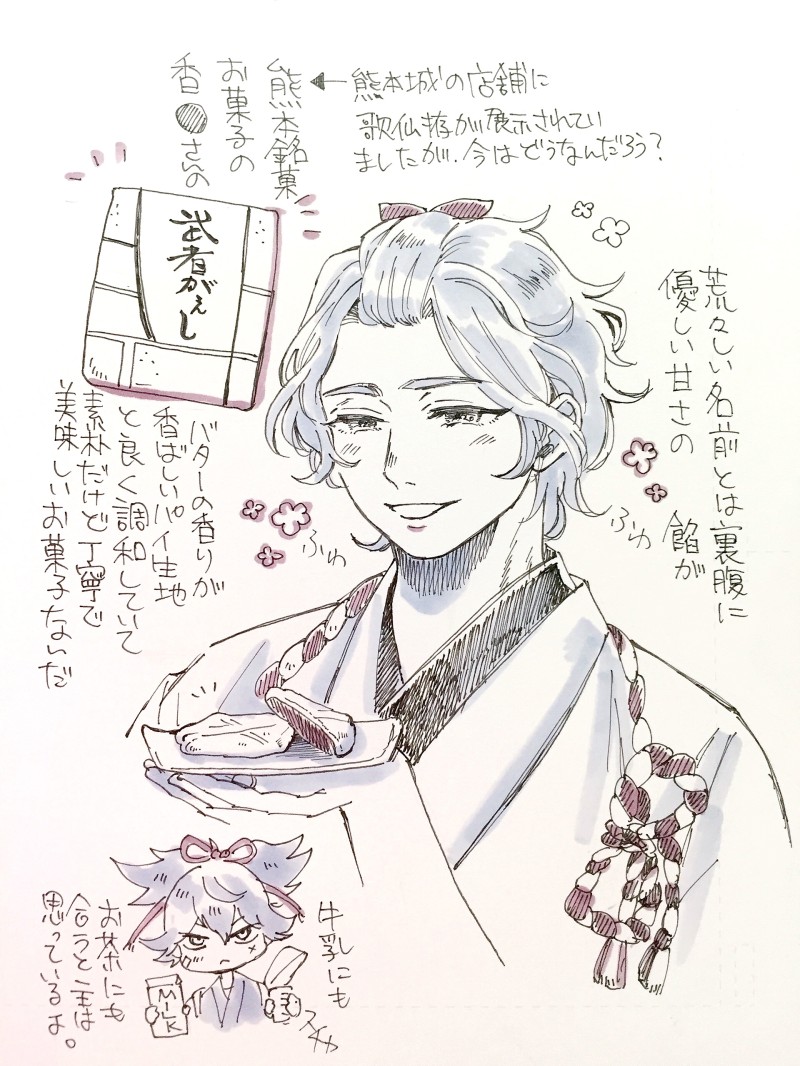 熊本銘菓
お菓子の
香●さんの
熊本城の店舗に
歌仙拵が展示されてい
ましたが、今はどうなんだろう?
武者がえし
荒々しい名前とは裏腹に
優しい甘さの
餡が
ふわ
ふわ
バターの香りが
香ばしいパイ生地
と良く調和していて
素朴だけど丁寧で
美味しいお菓子なんだ
牛乳にも
スチャ
MILK
お茶にも
合うと主は
思っているよ。